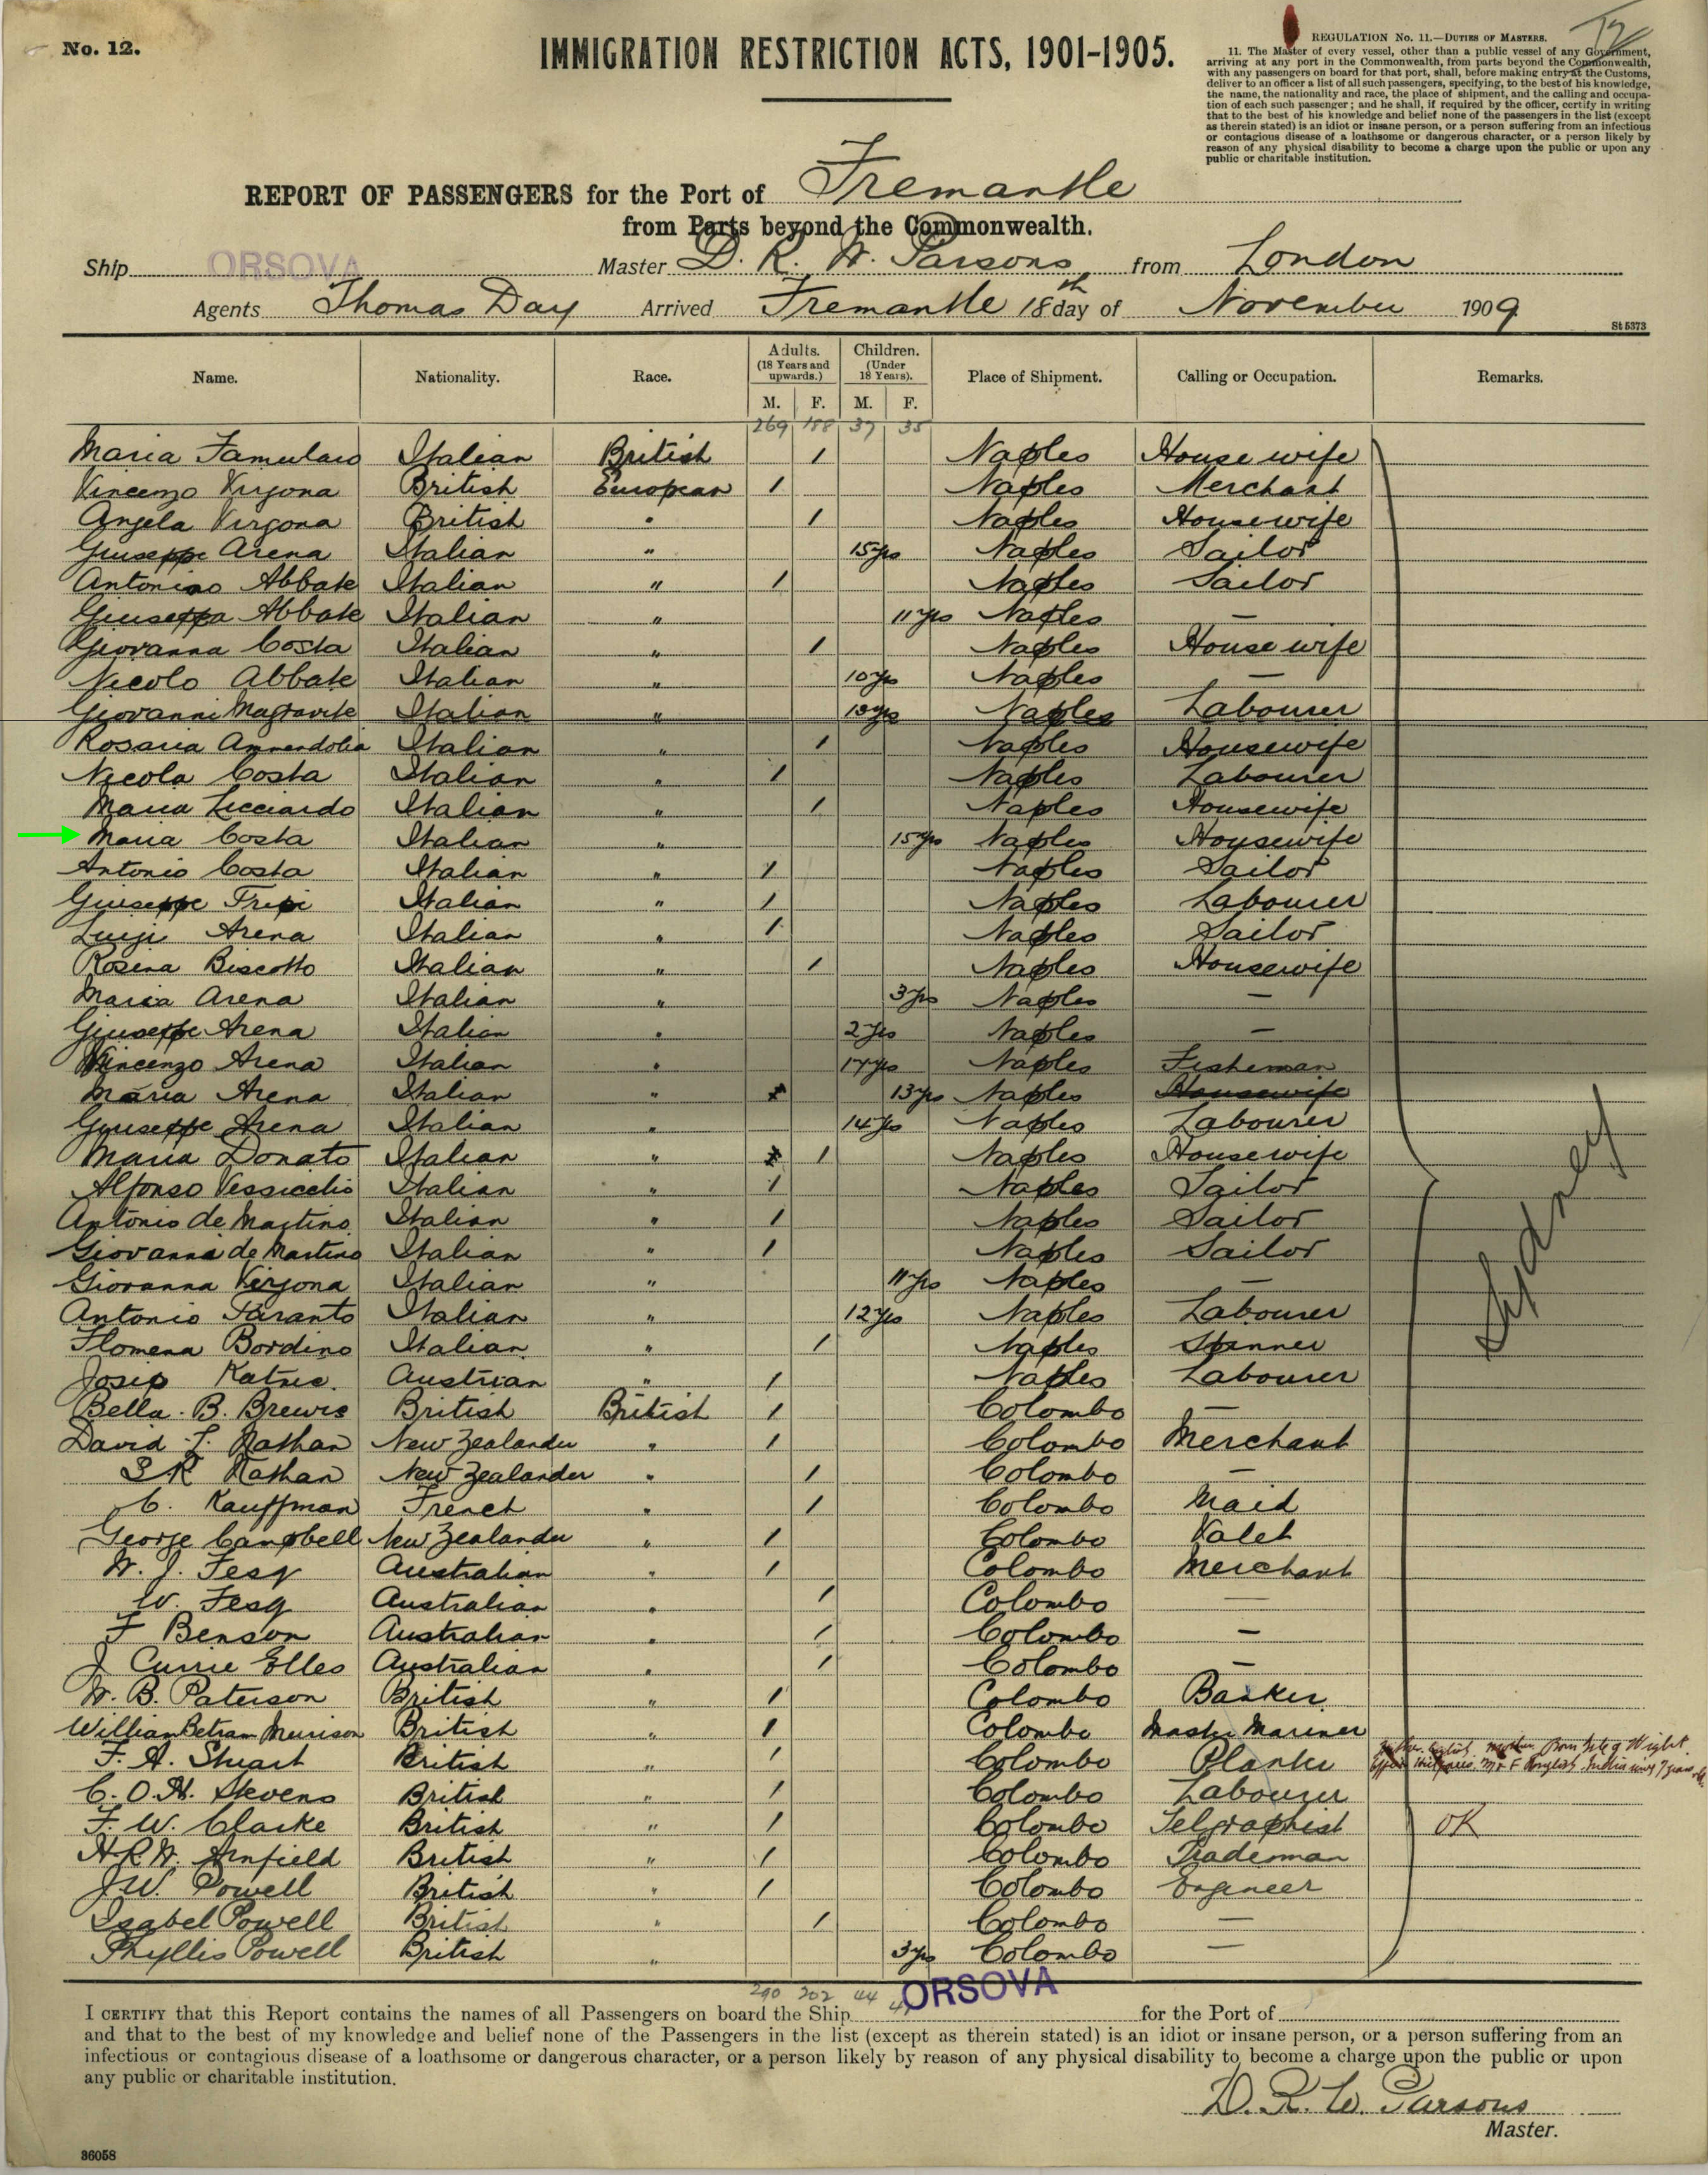 No. 12.
IMMIGRATION RESTRICTION ACTS, 1901-1905.
REGULATION No. 11.—DUTIES OF MASTERS.
11. The Master of every vessel, other than a public vessel of any Government,
arriving at any port in the Commonwealth, from parts beyond the Commonwealth,
with any passengers on board for that port, shall, before making entry at the Customs,
deliver to an officer a list of all such passengers, specifying, to the best of his knowledge,
the name, the nationality and race, the place of shipment, and the calling and occupa-
tion of each such passenger; and he shall, if required by the officer, certify in writing
that to the best of his knowledge and belief none of the passengers in the list (except
as therein stated) is an idiot or insane person, or a person suffering from an infectious
or contagious disease of a loathsome or dangerous character, or a person likely by
reason of any physical disability to become a charge upon the public or upon any
public or charitable institution.
REPORT OF PASSENGERS for the Port of Fremantle
from Parts beyond the Commonwealth.
Ship ORSOVA Master D. R. W. Parsons from London
Agents Thomas Day Arrived Fremantle 18th day of November 1909
St 5373
Name. Nationality. Race. Adults. (18 Years and upwards.) Children. (Under 18 Years). Place of Shipment. Calling or Occupation. Remarks.
M. F. M. F.
269 188 37 35
Maria Famularo Italian British 1 Naples House wife
Vincenzo Virgona British European 1 Naples Merchant
Angela Virgona British " 1 Naples Housewife
Giuseppe Arena Italian " 15yrs Naples Sailor
Antonino Abbate Italian " 1 Naples Sailor
Giuseppa Abbate Italian " 11 yrs Naples —
Giovanna Costa Italian " 1 Naples House wife
Nicolo Abbate Italian " 10yrs Naples —
Giovanni Italian " Naples Labourer
Rosaria Ammendolia Italian " 1 Naples Housewife
Nicola Costa Italian " 1 Naples Labourer
Maria Licciardo Italian " 1 Naples Housewife
Maria Costa Italian " 15yrs Naples Housewife
Antonio Costa Italian " 1 Naples Sailor
Giuseppe Tripi Italian " 1 Naples Labourer
Luigi Arena Italian " 1 Naples Sailor
Rosina Biscotto Italian " 1 Naples Housewife
Maria Arena Italian " 3yrs Naples —
Giuseppe Arena Italian " 2yrs Naples —
Vincenzo Arena Italian " 17yrs Naples Fisherman
Maria Arena Italian " 13yrs Naples Housewife
Giuseppe Arena Italian " 14yrs Naples Labourer
Maria Donato Italian " 1 Naples Housewife
Alfonso Vessicchio Italian " 1 Naples Sailor
Antonio de Martino Italian " 1 Naples Sailor
Giovanni de Martino Italian " 1 Naples Sailor
Giovanna Virgona Italian " 11yrs Naples —
Antonio Taranto Italian " 12yrs Naples Labourer
Flomena Bordino Italian " 1 Naples Spinner
Josip Austrian " 1 Naples Labourer
Bella. B. Brewis British British 1 Colombo —
David L. Nathan New Zealander " 1 Colombo Merchant
S R Nathan New Zealander " 1 Colombo —
C. Kauffman French " 1 Colombo Maid
George Campbell New Zealander " 1 Colombo Valet
W. J. Fesq Australian " 1 Colombo Merchant
W. Fesq Australian " 1 Colombo —
F Benson Australian " 1 Colombo —
J Currie Elles Australian " 1 Colombo —
W. B. Paterson British " 1 Colombo Banker
William Betram Murison British " 1 Colombo Master Mariner
F. A. Stuart British " 1 Colombo Planter
C. O. H. Stevens British " 1 Colombo Labourer
F. W. Clarke British " 1 Colombo Telgraphist OK
H R W. Armfield British " 1 Colombo Trademan
J W. Powell British " 1 Colombo Engineer
Isabel Powell British " 1 Colombo —
Phyllis Powell British " 3yrs Colombo —
Sydney
290 202 44
I CERTIFY that this Report contains the names of all Passengers on board the Ship ORSOVA for the Port of
and that to the best of my knowledge and belief none of the Passengers in the list (except as therein stated) is an idiot or insane person, or a person suffering from an
infectious or contagious disease of a loathsome or dangerous character, or a person likely by reason of any physical disability to become a charge upon the public or upon
any public or charitable institution.
D. R. W. Parsons
Master.
36058